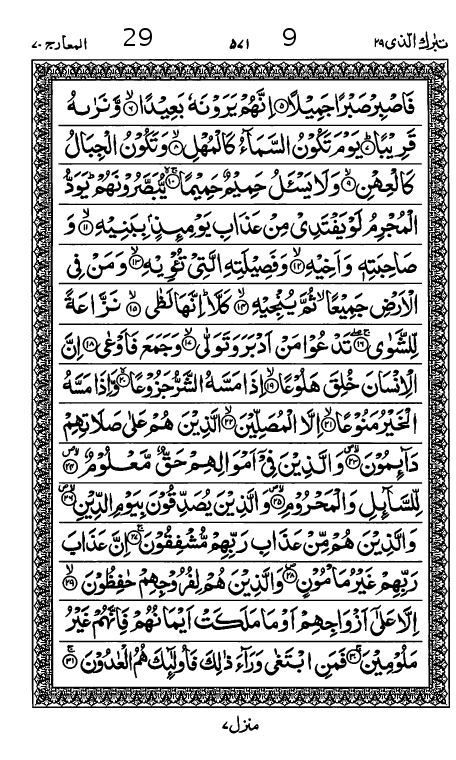 تبرك الذى ٢٩ 9 ٥٧١ 29 المعارج ٧٠
فَاصْبِرْ صَبْرًا جَمِيْلًا ۝٥ اِنَّهُمْ يَرَوْنَهٗ بَعِيْدًا ۝٦ وَّنَرٰىهُ
قَرِيْبًا ۝٧ يَوْمَ تَكُوْنُ السَّمَآءُ كَالْمُهْلِ ۝٨ وَتَكُوْنُ الْجِبَالُ
كَالْعِهْنِ ۝٩ وَلَا يَسْـَٔلُ حَمِيْمٌ حَمِيْمًا ۝١٠ يُّبَصَّرُوْنَهُمْ ؕ يَوَدُّ
الْمُجْرِمُ لَوْ يَفْتَدِىْ مِنْ عَذَابِ يَوْمِىِٕذٍۭ بِبَنِيْهِ ۝١١ وَ
صَاحِبَتِهٖ وَاَخِيْهِ ۝١٢ وَفَصِيْلَتِهِ الَّتِىْ تُـْٔوِيْهِ ۝١٣ وَمَنْ فِى
الْاَرْضِ جَمِيْعًا ۙ ثُمَّ يُنْجِيْهِ ۝١٤ كَلَّا ؕ اِنَّهَا لَظٰى ۝١٥ نَزَّاعَةً
لِّلشَّوٰى ۝١٦ تَدْعُوْا مَنْ اَدْبَرَ وَتَوَلّٰى ۝١٧ وَجَمَعَ فَاَوْعٰى ۝١٨ اِنَّ
الْاِنْسَانَ خُلِقَ هَلُوْعًا ۝١٩ اِذَا مَسَّهُ الشَّرُّ جَزُوْعًا ۝٢٠ وَّاِذَا مَسَّهُ
الْخَيْرُ مَنُوْعًا ۝٢١ اِلَّا الْمُصَلِّيْنَ ۝٢٢ الَّذِيْنَ هُمْ عَلٰى صَلَاتِهِمْ
دَآىِٕمُوْنَ ۝٢٣ وَالَّذِيْنَ فِىْٓ اَمْوَالِهِمْ حَقٌّ مَّعْلُوْمٌ ۝٢٤
لِّلسَّآىِٕلِ وَالْمَحْرُوْمِ ۝٢٥ وَالَّذِيْنَ يُصَدِّقُوْنَ بِيَوْمِ الدِّيْنِ ۝٢٦
وَالَّذِيْنَ هُمْ مِّنْ عَذَابِ رَبِّهِمْ مُّشْفِقُوْنَ ۝٢٧ اِنَّ عَذَابَ
رَبِّهِمْ غَيْرُ مَاْمُوْنٍ ۝٢٨ وَالَّذِيْنَ هُمْ لِفُرُوْجِهِمْ حٰفِظُوْنَ ۝٢٩
اِلَّا عَلٰٓى اَزْوَاجِهِمْ اَوْ مَا مَلَكَتْ اَيْمَانُهُمْ فَاِنَّهُمْ غَيْرُ
مَلُوْمِيْنَ ۝٣٠ فَمَنِ ابْتَغٰى وَرَآءَ ذٰلِكَ فَاُولٰٓىِٕكَ هُمُ الْعٰدُوْنَ ۝٣١
منزل ٧